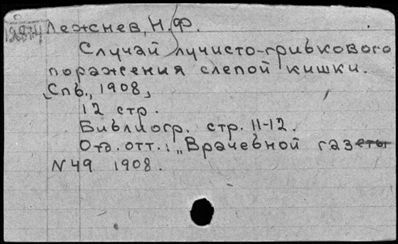 Лежнев, Н.Ф.
Случай лучисто-грибкового
поражения слепой кишки.
[Спб., 1908]
12 стр.
Библиогр. стр. 11-12.
Отд. отт.: "Врачебной газеты
N49 1908.